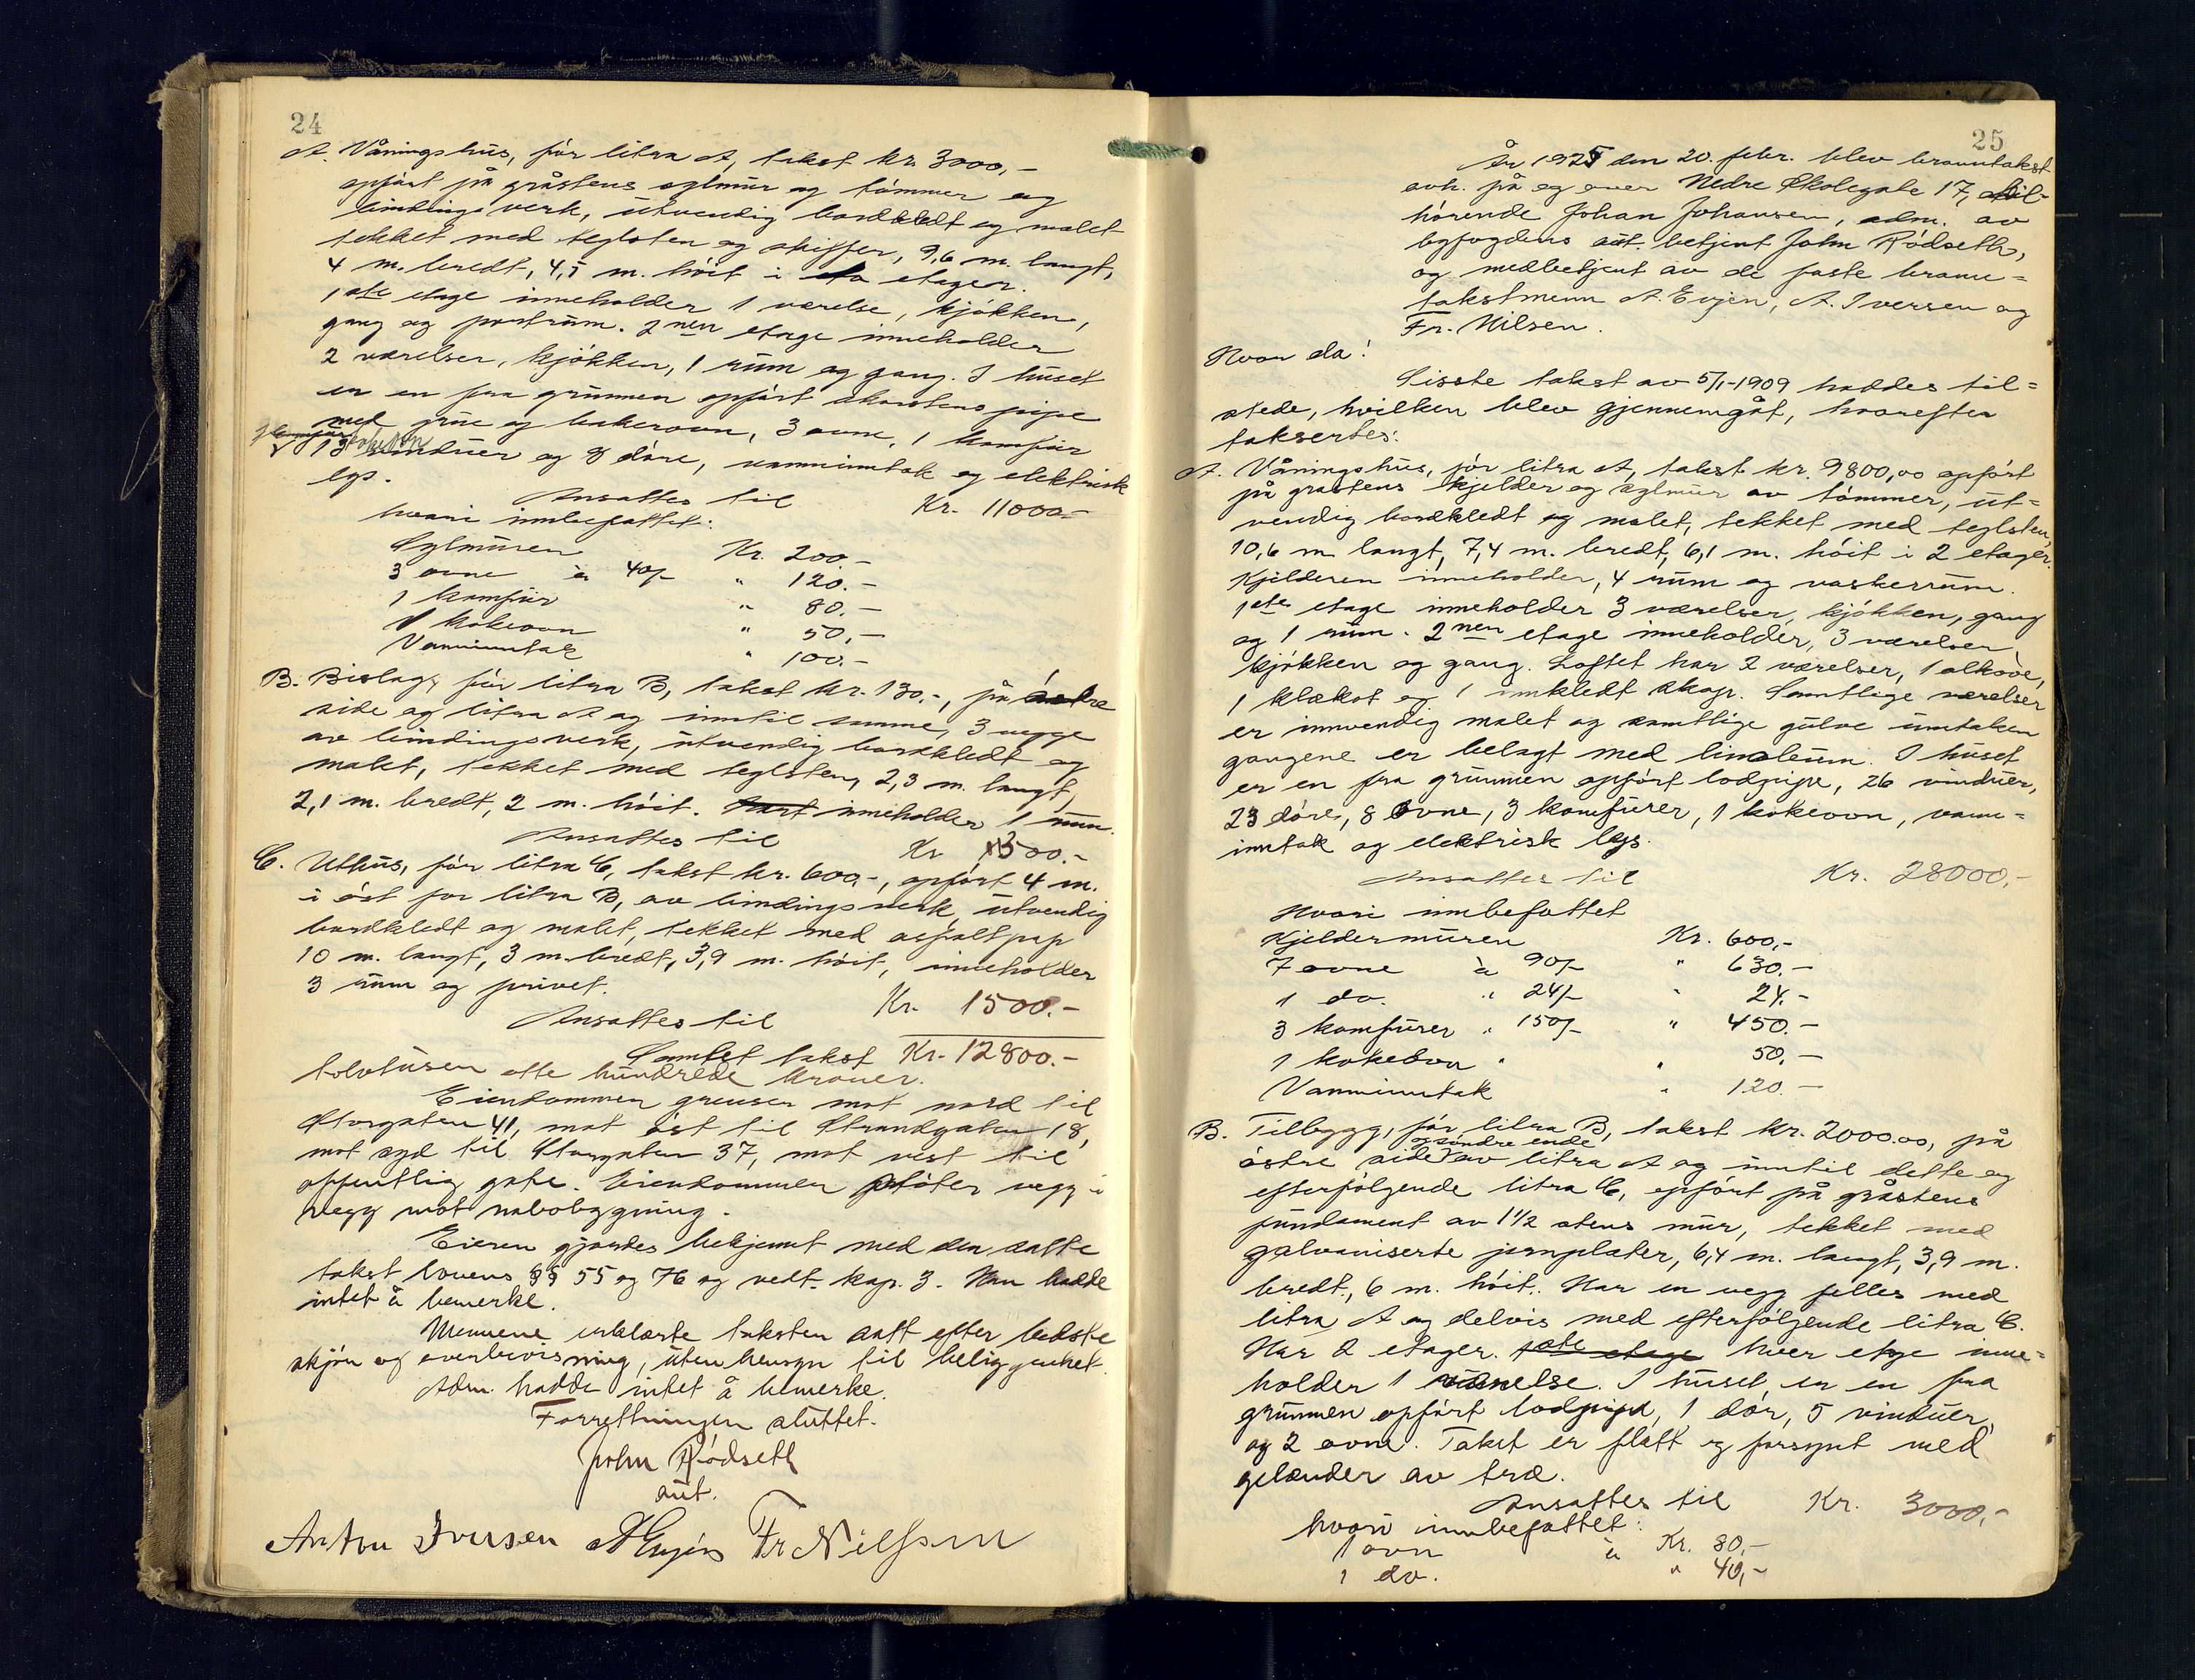 24
A. Våningshus, før litra A, takst kr. 3000,-
opført på gråstens sylmur og tømmer og
bindingsverk, utvendig bordkledt og malet
tekket med teglsten og skiffer, 9,6 m. langt,
4 m. bredt, 4,5 m. høit i to etager.
1ste etage inneholder 1 værelse, kjøkken,
gang og portrum. 2nen etage inneholder
2 værelser, kjøkken, 1 rum og gang. I huset
er en fra grunnen opført skorstenspipe
med grue og bakerovn, 3 ovne, 1 komfur
13 vinduer og 8 døre, vanninntak og elektrisk
lys.
Ansattes til Kr. 11000.-
hvori innbefattet:
Sylmuren Kr. 200.-
3 ovne à 40/- " 120.-
1 komfur " 80.-
1 kokeovn " 50.-
Vanninntak " 100.-
B. Bislag, før litra B, takst kr. 130.-, på østre
side og litra A og inntil samme, 3 vegge
av bindingsverk, utvendig bordkledt og
malet, tekket med teglsten, 2,3 m. langt,
2,1 m. bredt, 2 m. høit. inneholder 1 rum.
Ansattes til Kr 300.-
C. Uthus, før litra C, takst kr. 600,-, opført 4 m.
i øst for litra B, av bindingsverk, utvendig
bordkledt og malet, tekket med asfaltpap
10 m. langt, 3 m. bredt, 3,9 m. høit, inneholder
3 rum og privet.
Ansattes til Kr. 1500.-
Samlet takst Kr. 12800.-
tolvtusen otte hundrede kroner.
Eiendommen grenser mot nord til
Storgaten 41, mot øst til Strandgaten 18,
mot syd til Storgaten 37, mot vest til
offentlig gate. Eiendommen støter vegg i
vegg mot nabobygning.
Eieren gjordes bekjennt med den satte
takst lovens §§ 55 og 76 og vedt. kap. 3. Han hadde
intet å bemerke.
Mennene erklærte taksten satt efter bedste
skjøn og overbevisning, uten hensyn til beliggenhet.
Adm. hadde intet å bemerke.
Forretningen sluttet.
John Rødseth
aut.
Anton Iversen A Evjen Fr Nilssen
25
År 1925 den 20. febr. blev branntakst
avh. på og over Nedre Skolegate 17, til-
hørende Johan Johansen, adm. av
byfogdens aut. betjent John Rødseth,
og medbetjent av de faste brann=
takstmenn A. Evjen, A. Iversen og
Fr. Nilsen.
Hvor da!
Sisste takst av 5/1-1909 haddes til=
stede, hvilken blev gjennemgåt, hvorefter
taksertes:
A. Våningshus, før litra A, takst kr. 9800,00 opført
på gråstens kjelder og sylmur av tømmer, ut=
vendig bordkledt og malet, tekket med teglsten,
10,6 m langt, 7,4 m. bredt, 6,1 m. høit i 2 etager.
Kjelderen inneholder, 4 rum og vaskerrum.
1ste etage inneholder 3 værelser, kjøkken, gang
og 1 rum. 2nen etage inneholder, 3 værelser,
kjøkken og gang. Loftet har 2 værelser, 1 alkove,
1 klækot og 1 innkledt skap. Samtlige værelser
er innvendig malet og samtlige gulve unntaken
gangene er belagt med linoleum. I huset
er en fra grunnen opført lodpipe, 26 vinduer,
23 døre, 8 ovne, 3 komfurer, 1 kokeovn, vann=
inntak og elektrisk lys.
Ansattes til Kr. 28000,-
Hvori innbefattet
Kjeldermuren Kr. 600,-
7 ovne à 90/- " 630.-
1 do. " 24/- " 24.-
3 komfurer " 150/- " 450.-
1 kokeovn " " 50.-
Vanninntak " 120.-
B. Tilbygg, før litra B, takst kr. 2000.00, på
og søndre ende
østre side av litra A og inntil dette og
efterfølgende litra C, opført på gråstens
fundament av 1 1/2 stens mur, tekket med
galvaniserte jernplater, 6,4 m. langt, 3,9 m.
bredt, 6 m. høit. Har en vegg felles med
litra A og delvis med efterfølgende litra C.
Har 2 etager. 1ste etage hver etage inne=
holder 1 værelse. I huset er en fra
grunnen opført lodpipe, 1 dør, 5 vinduer,
og 2 ovne. Takst er flatt og forsynt med
gelænder av træ.
Ansattes til Kr. 3000,-
hvori innbefattet:
1 ovn à Kr. 80,-
1 do. " 40,-